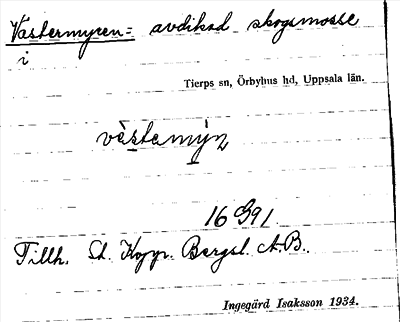 Västermyren = avdikad skogsmosse
i
Tierps sn, Örbyhus hd, Uppsala län.
västamỵn
16 G91.
Tillh. St. Koppr. Bergsl. A.B.
Ingegärd Isaksson 1934.